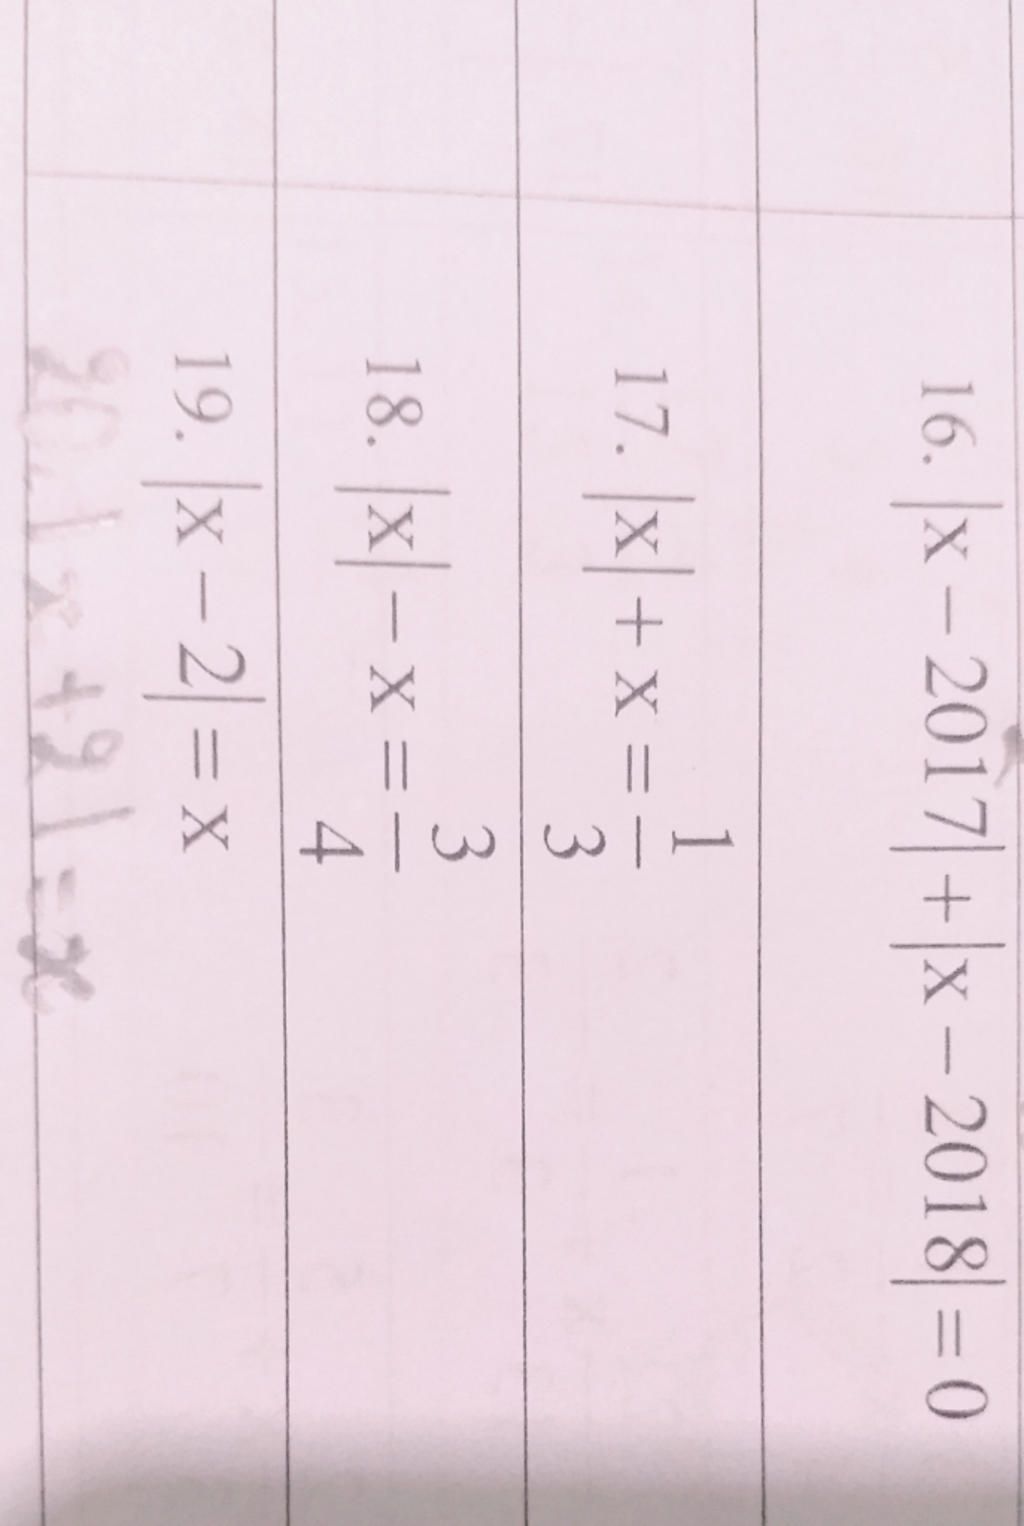 16. |x − 2017| + |x − 2018| = 0
17. |x| + x = 1/3
18. |x| − x = 3/4
19. |x − 2| = x
20. |x + 2| = x